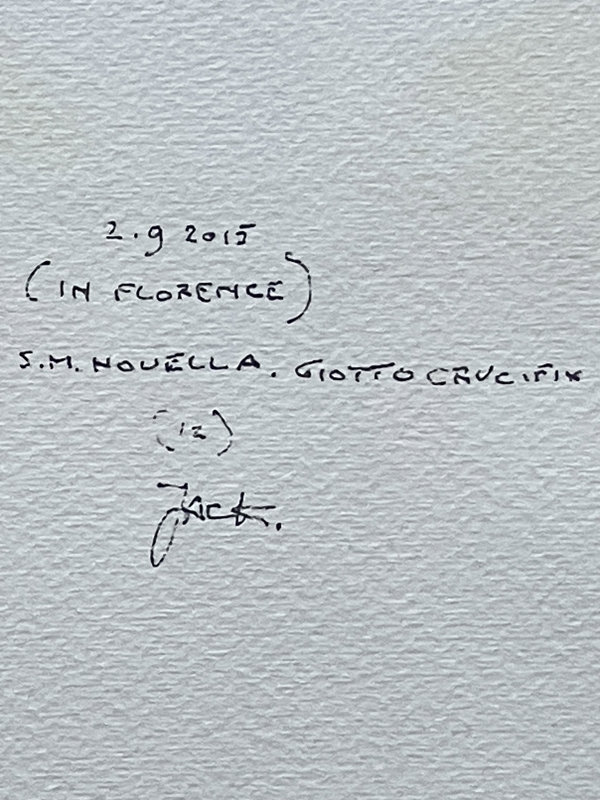 2.9 2015
(IN FLORENCE)
S.M. NOVELLA. GIOTTO CRUCIFIX
(12)
Jack.